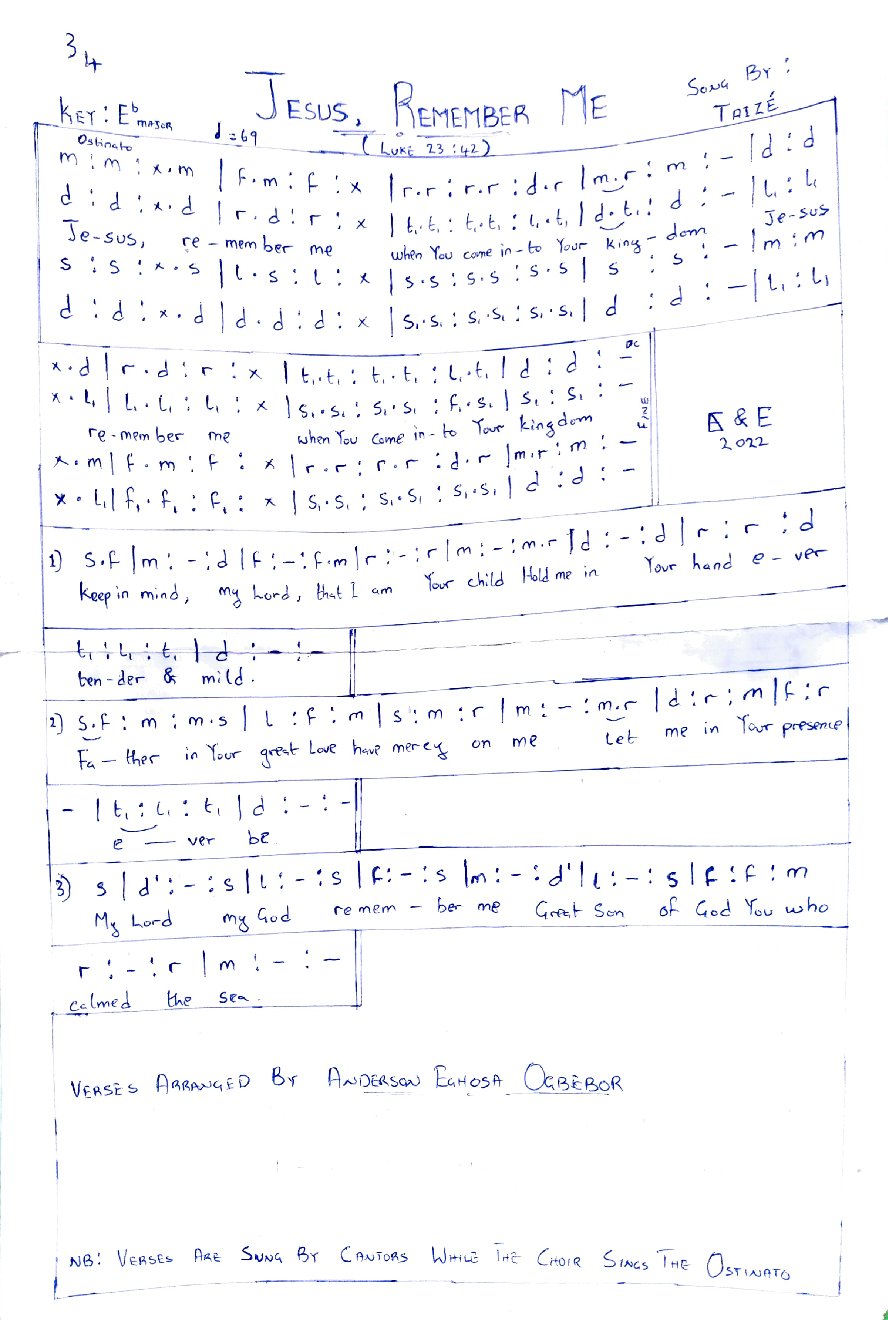 3
4
JESUS, REMEMBER ME
SONG BY :
TAIZÉ
KEY : Eb MAJOR
d = 69
(LUKE 23 : 42)
Ostinato
m : m : x . m | f . m : f : x | r . r : r . r : d . r | m . r : m : – | d : d
d : d : x . d | r . d : r : x | t₁ . t₁ : t₁ . t₁ : l₁ . t₁ | d . t₁ : d : – | l₁ : l₁
Je-sus, re-member me when You come in-to Your king-dom Je-sus
s : s : x . s | l . s : l : x | s . s : s . s : s . s | s : s : – | m : m
d : d : x . d | d . d : d : x | s₁ . s₁ : s₁ . s₁ : s₁ . s₁ | d : d : – | l₁ : l₁
x . d | r . d : r : x | t₁ . t₁ : t₁ . t₁ : l₁ . t₁ | d : d : – DC
x . l₁ | l₁ . l₁ : l₁ : x | s₁ . s₁ : s₁ . s₁ : f₁ . s₁ | s₁ : s₁ : –
re-member me when You come in-to Your kingdom
x . m | f . m : f : x | r . r : r . r : d . r | m . r : m : –
x . l₁ | f₁ . f₁ : f₁ : x | s₁ . s₁ : s₁ . s₁ : s₁ . s₁ | d : d : –
FINE
A & E
2022
1) s . f | m : – : d | f : – : f . m | r : – : r | m : – : m . r | d : – : d | r : r : d
Keep in mind, my Lord, that I am Your child Hold me in Your hand e – ver
t₁ : l₁ : t₁ | d : – : –
ten-der & mild.
2) s . f : m : m . s | l : f : m | s : m : r | m : – : m . r | d : r : m | f : r
Fa – ther in Your great Love have mercy on me Let me in Your presence
– | t₁ : l₁ : t₁ | d : – : –
e — ver be
3) s | d' : – : s | l : – : s | f : – : s | m : – : d' | l : – : s | f : f : m
My Lord my God remem – ber me Great Son of God You who
r : – : r | m : – : –
calmed the sea.
VERSES ARRANGED BY ANDERSON EGHOSA OGBEBOR
NB: VERSES ARE SUNG BY CANTORS WHILE THE CHOIR SINGS THE OSTINATO